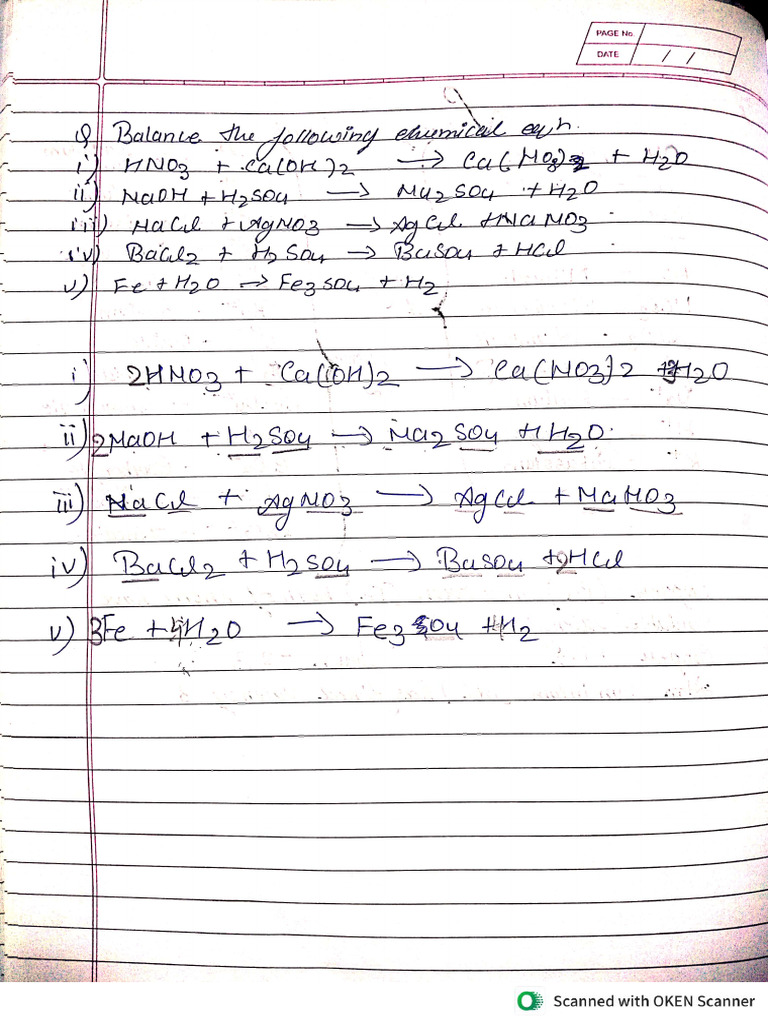 PAGE No.
DATE / /
Q Balance the following chemical eqn.
i) HNO3 + Ca(OH)2 → Ca(NO3)2 + H2O
ii) NaOH + H2SO4 → Na2SO4 + H2O
iii) NaCl + AgNO3 → AgCl + NaNO3
iv) BaCl2 + H2SO4 → BaSO4 + HCl
v) Fe + H2O → Fe3SO4 + H2
i) 2HNO3 + Ca(OH)2 → Ca(NO3)2 + 2H2O
ii) 2NaOH + H2SO4 → Na2SO4 + H2O
iii) NaCl + AgNO3 → AgCl + NaNO3
iv) BaCl2 + H2SO4 → BaSO4 + 2HCl
v) 3Fe + 4H2O → Fe3 O4 + H2
Scanned with OKEN Scanner